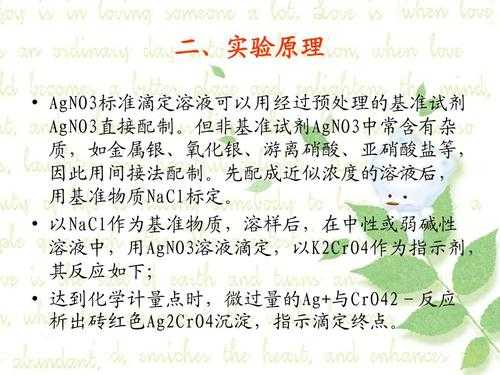 二、实验原理
• AgNO3标准滴定溶液可以用经过预处理的基准试剂
AgNO3直接配制。但非基准试剂AgNO3中常含有杂
质，如金属银、氧化银、游离硝酸、亚硝酸盐等，
因此用间接法配制。先配成近似浓度的溶液后，
用基准物质NaCl标定。
• 以NaCl作为基准物质，溶样后，在中性或弱碱性
溶液中，用AgNO3溶液滴定，以K2CrO4作为指示剂，
其反应如下；
• 达到化学计量点时，微过量的Ag+与CrO42－反应
析出砖红色Ag2CrO4沉淀，指示滴定终点。